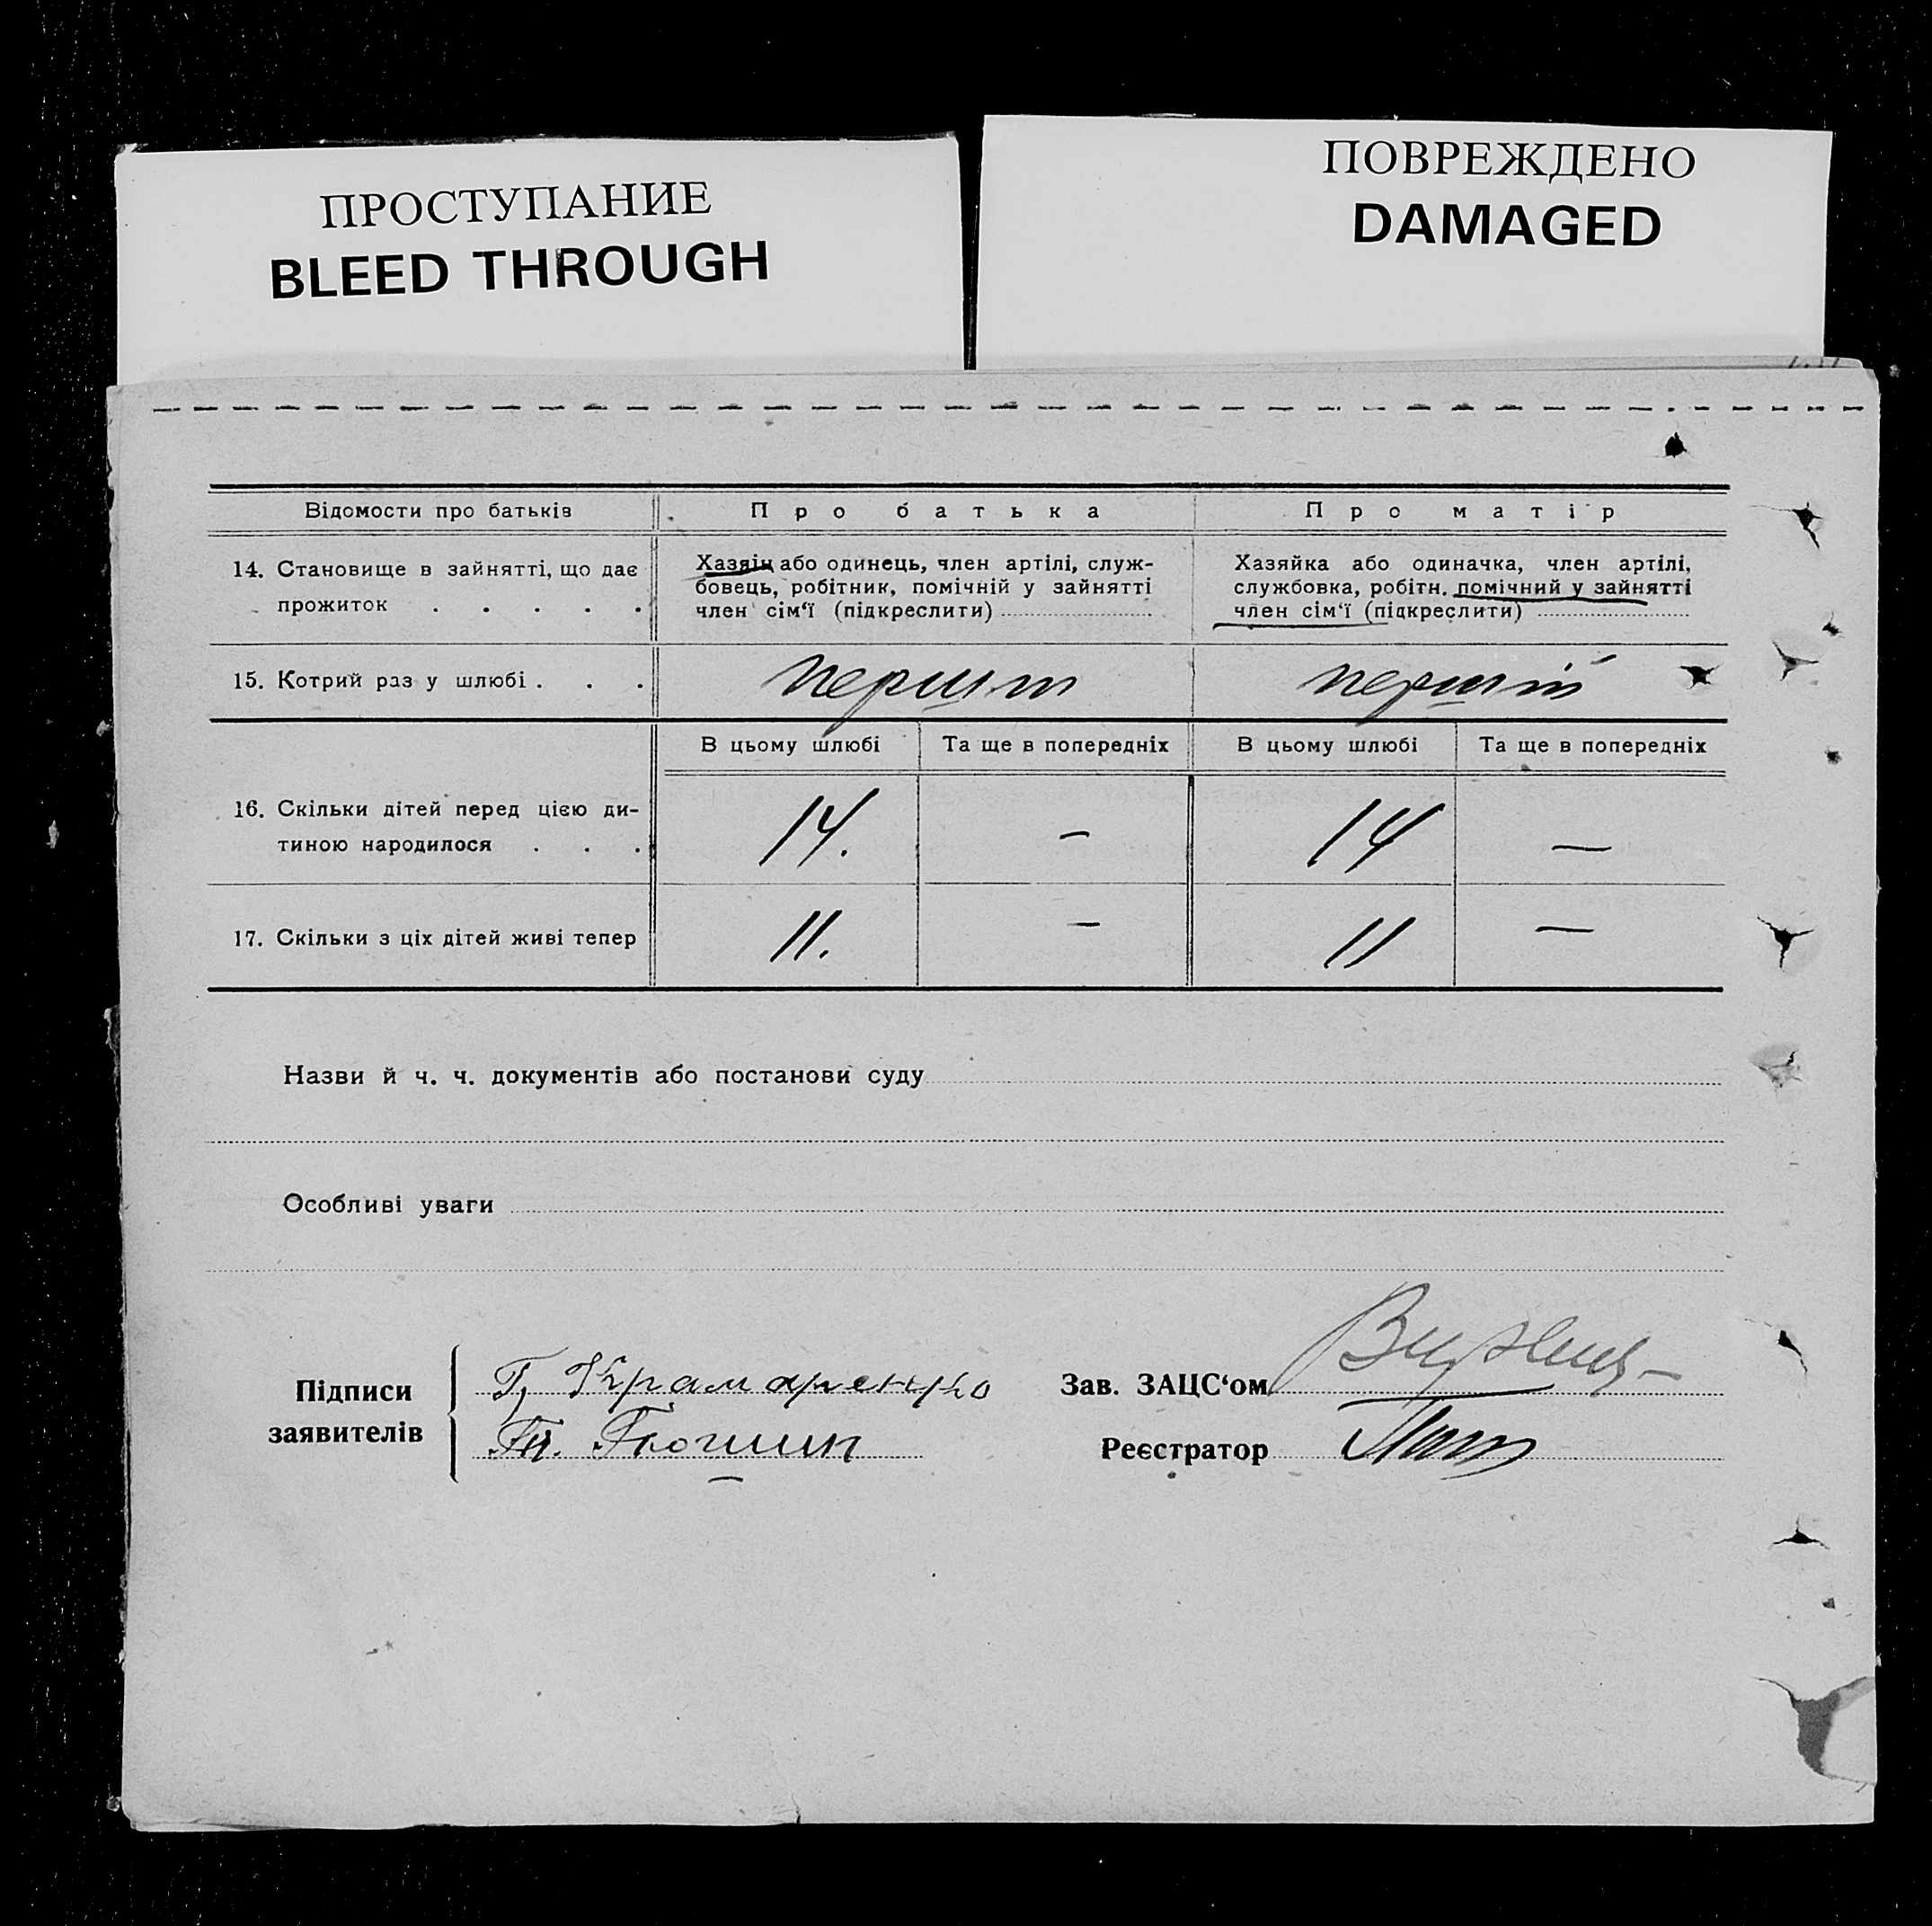 ПРОСТУПАНИЕ
BLEED THROUGH
ПОВРЕЖДЕНО
DAMAGED
Відомости про батьків
Про батька
Про матір
14. Становище в зайнятті, що дає
прожиток . . . . .
Хазяїн або одинець, член артілі, служ-
бовець, робітник, помічній у зайнятті
член сім‘ї (підкреслити)
Хазяйка або одиначка, член артілі,
службовка, робітн. помічний у зайнятті
член сім‘ї (підкреслити)
15. Котрий раз у шлюбі . . .
перший
перший
В цьому шлюбі
Та ще в попередніх
В цьому шлюбі
Та ще в попередніх
16. Скільки дітей перед цією ди-
тиною народилося . . .
14.
—
14
—
17. Скільки з ціх дітей живі тепер
11.
—
11
—
Назви й ч. ч. документів або постанови суду
Особливі уваги
Підписи
заявителів
Г. Крамаренко
Зав. ЗАЦС‘ом
Реєстратор